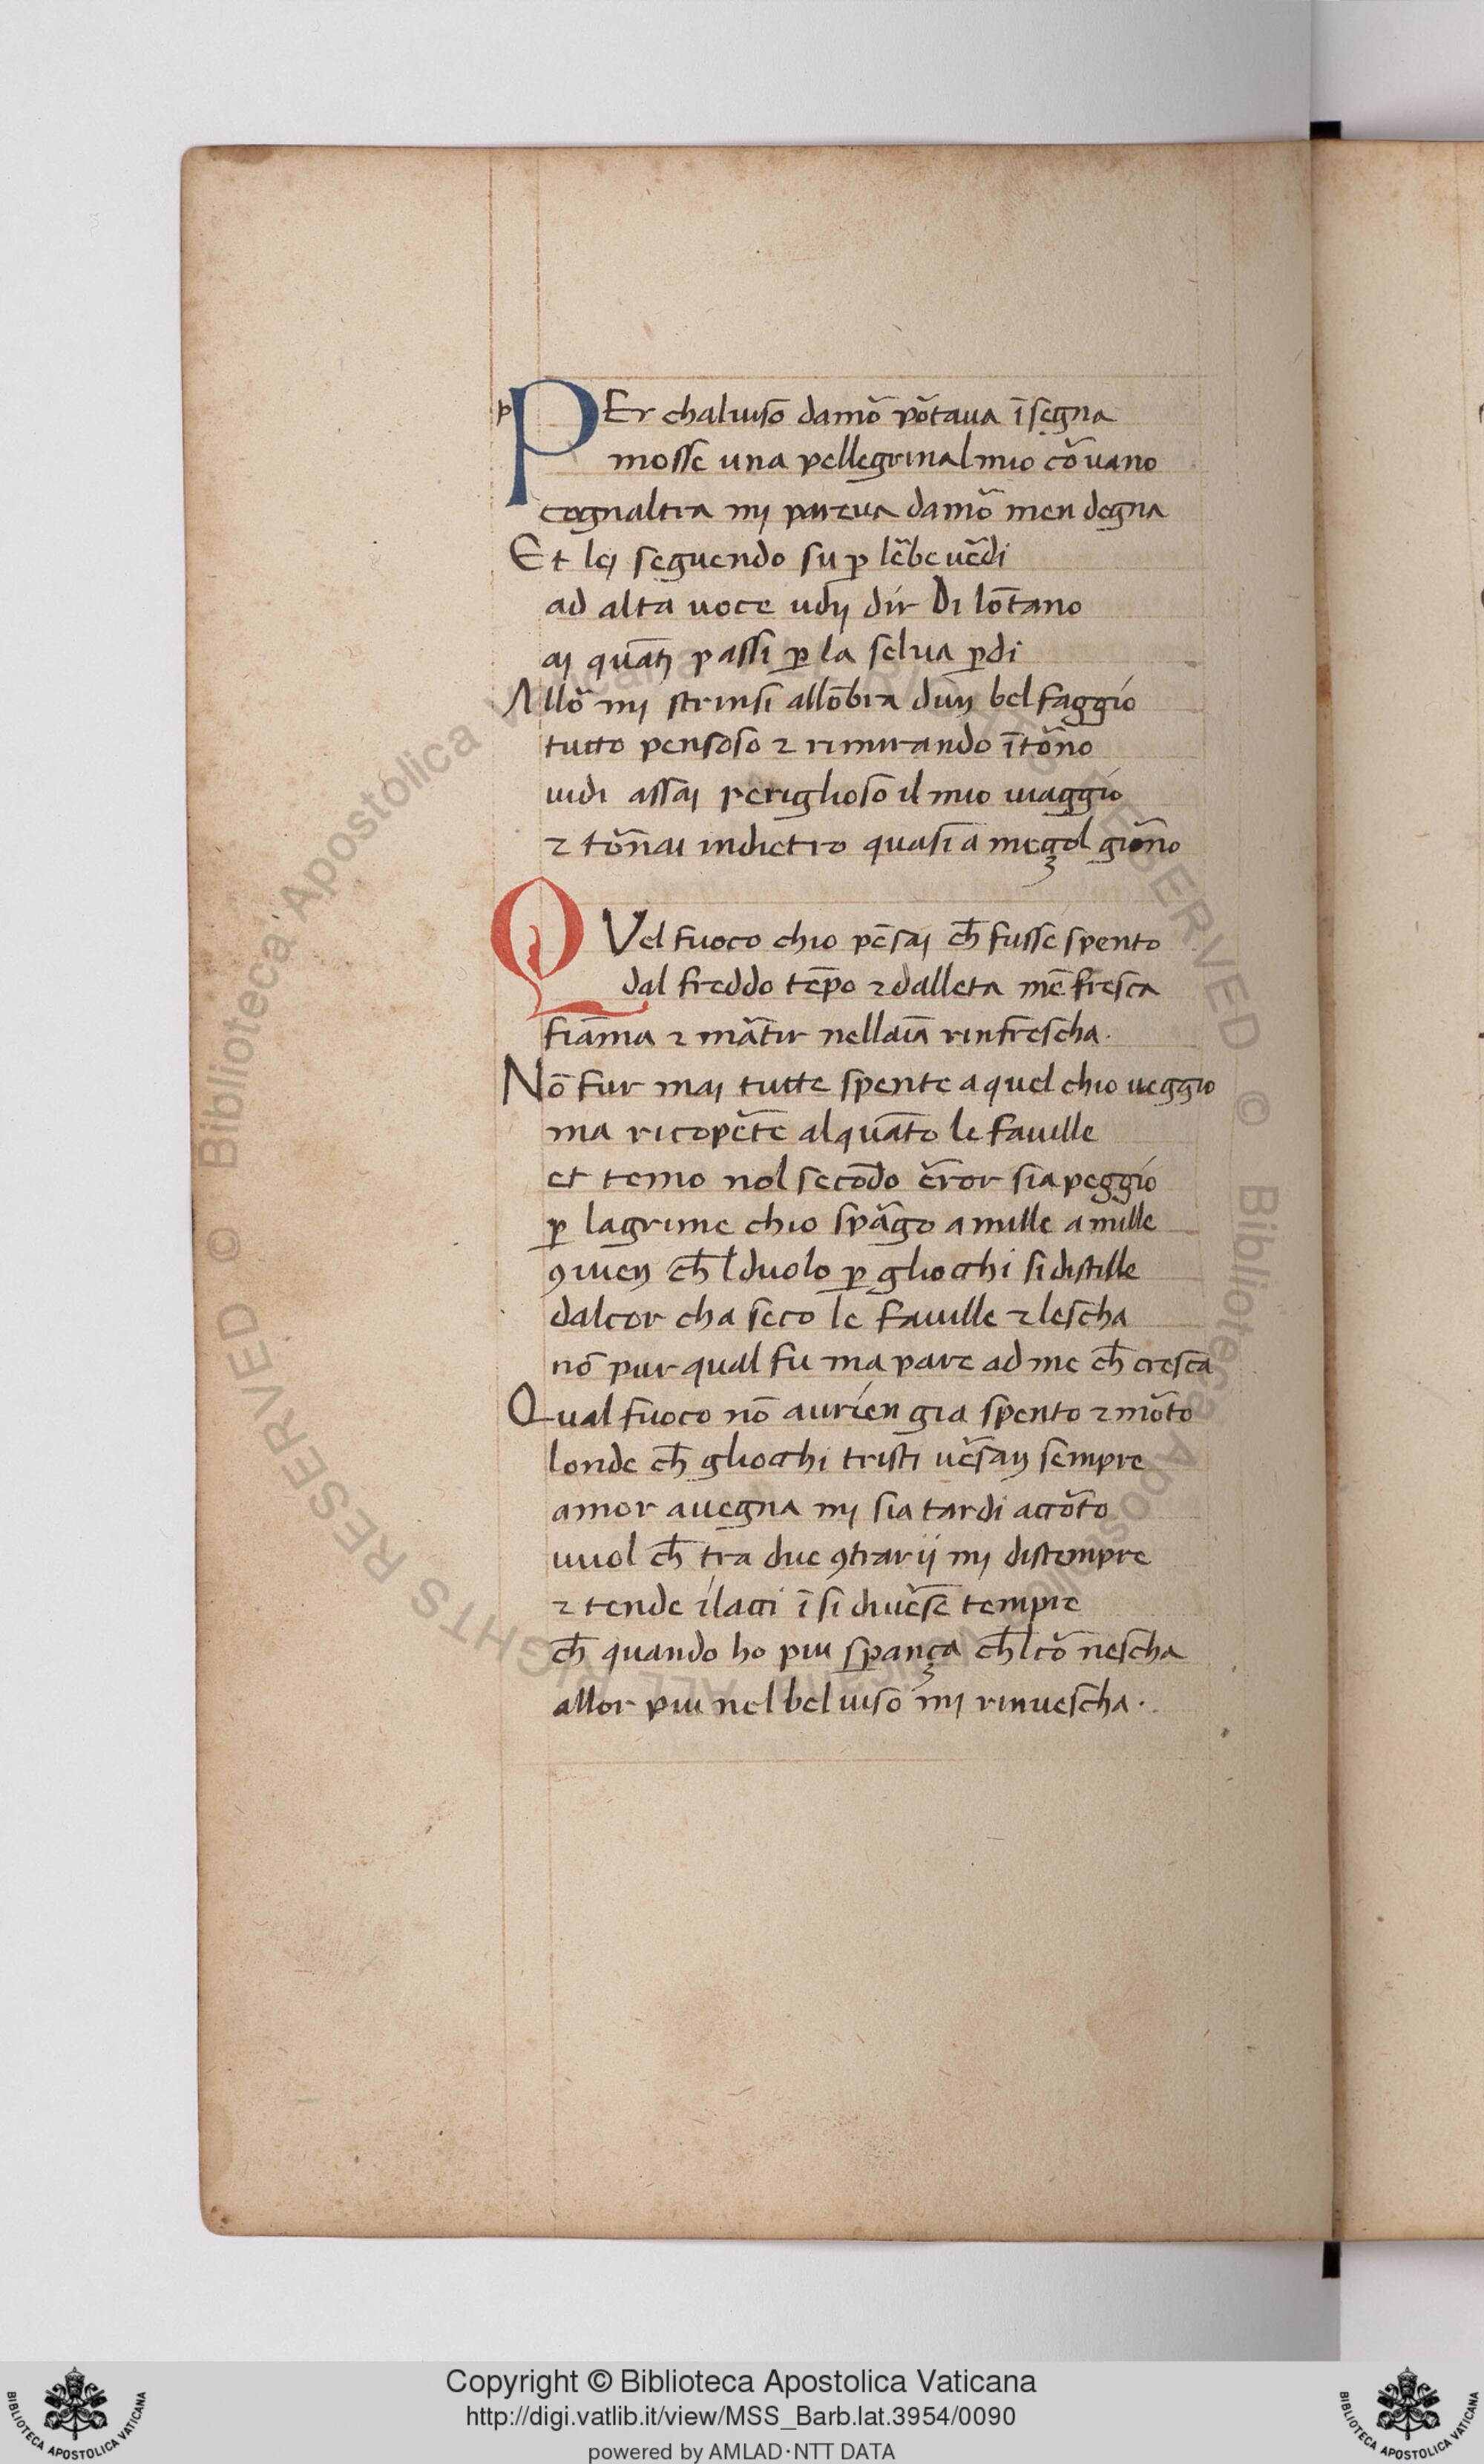 p PEr chaluiso damō põtaua ī segna
mosse una pellegrinal mio cõ uano
cognaltra mj pareua damõ men degna
Et lej seguendo su ꝑ lẽbe uẽdi
ad alta uoce udij dir Di lōtano
aj quātj passi ꝑ la selua ꝑdi
Allõ mj strinsi allōbra dun bel faggio
tutto pensoso ⁊ rimirando ītõno
uidi assaj periglioso il mio uiaggio
⁊ tõnai indietro quasi a meçol giõno
QVel fuoco chio pēsaj ch̄ fusse spento
dal freddo tēpo ⁊ dalleta mē fresca
fiāma ⁊ mãtir nellaīa rinfrescha.
Nō fur maj tutte spente a quel chio ueggio
ma ricopẽte alquāto le fauille
et temo nol secōdo ẽror sia peggio
ꝑ lagrime chio spãgo a mille a mille
ꝯuien ch̄ l duolo ꝑ gliocchi si distille
dal cor cha seco le fauille ⁊ lescha
nō pur qual fu ma pare ad me ch̄ cresca
Qual fuoco nō aurien gia spento ⁊ mõto
londe ch̄ gliocchi tristi uẽsan sempre
amor auegna mj sia tardi accõto
uuol ch̄ tra due ꝯtrarij mj distempre
⁊ tende i lacci ī si diuẽse tempre
ch̄ quando ho piu sꝑança ch̄ l cõ nescha
allor piu nel bel uiso mj rinuescha.
Copyright © Biblioteca Apostolica Vaticana
http://digi.vatlib.it/view/MSS_Barb.lat.3954/0090
powered by AMLAD·NTT DATA
© Biblioteca Apostolica Vaticana ALL RIGHTS RESERVED
BIBLIOTECA APOSTOLICA VATICANA
BIBLIOTECA APOSTOLICA VATICANA